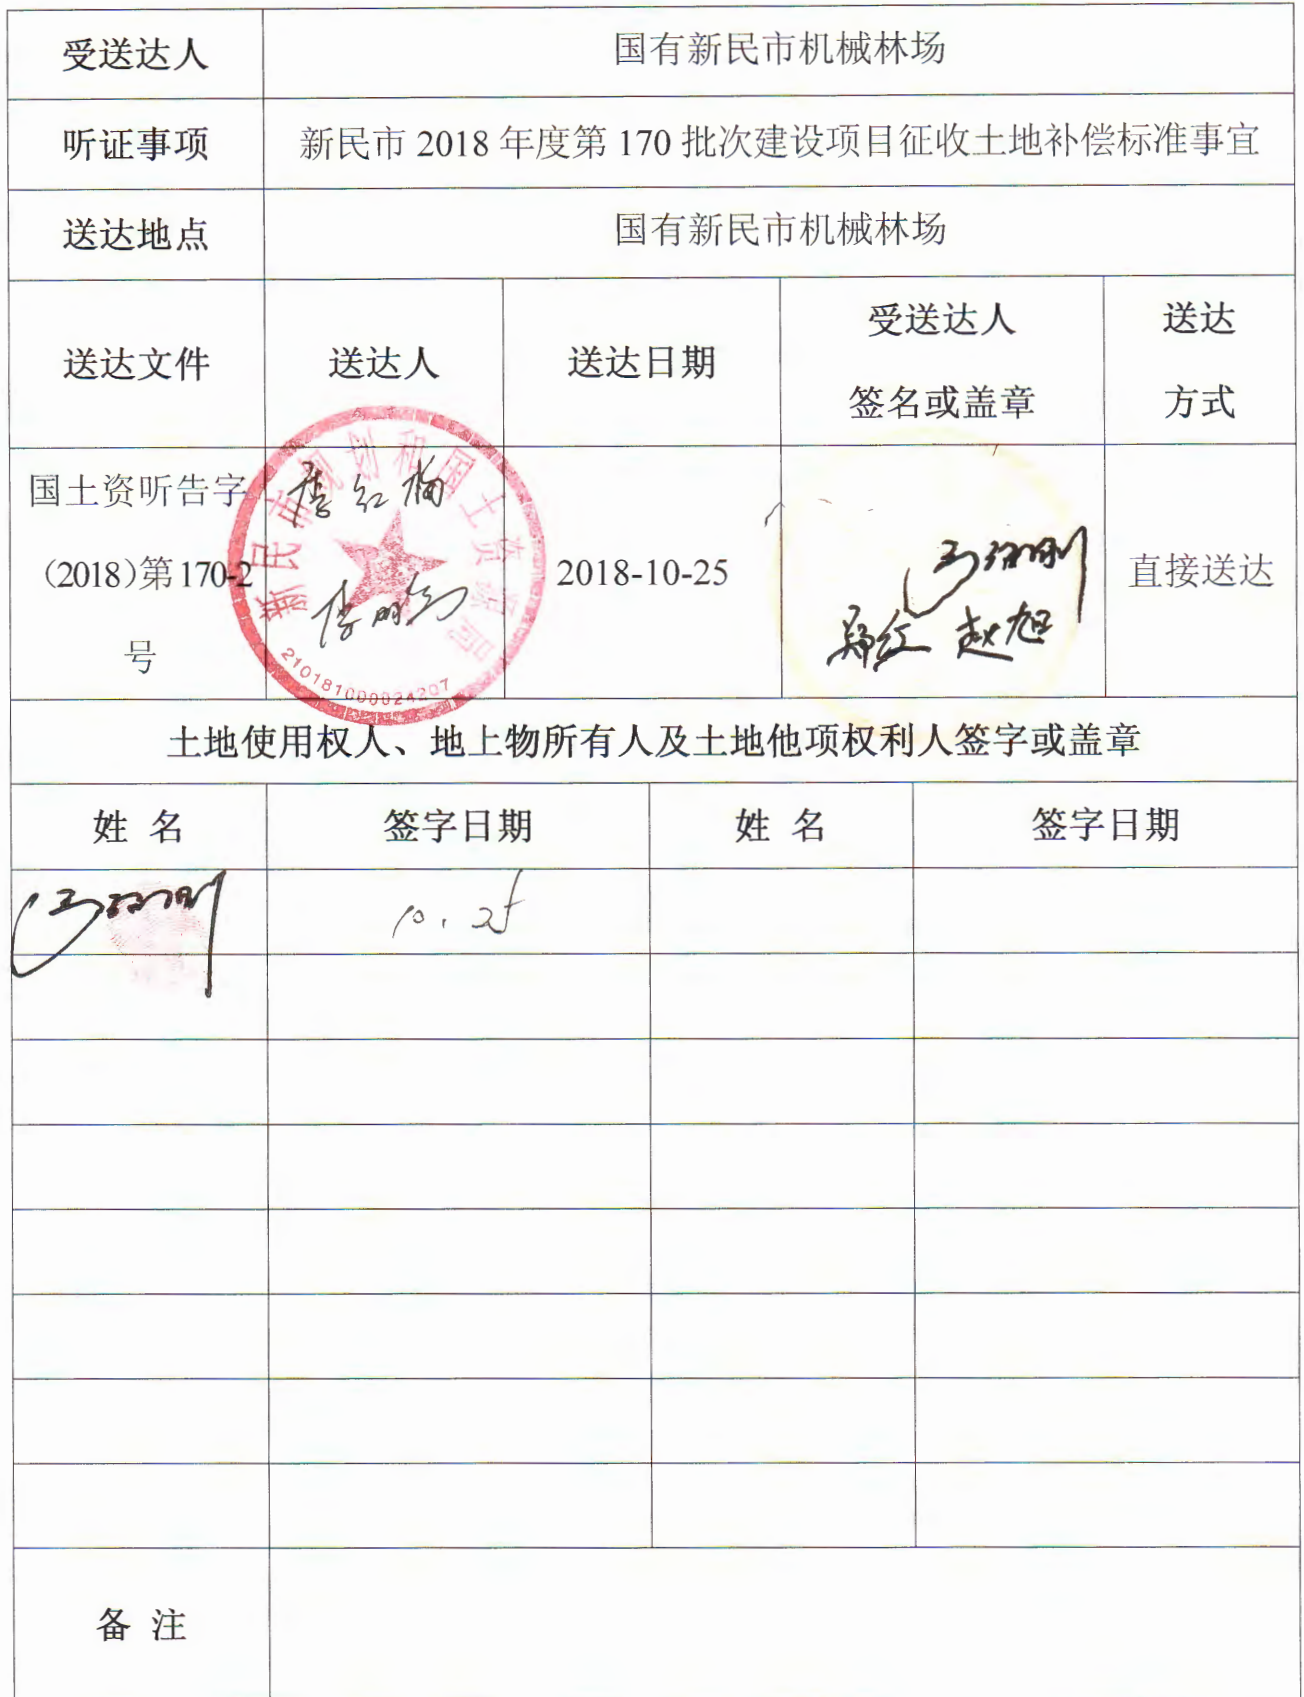 受送达人 国有新民市机械林场
听证事项 新民市 2018 年度第 170 批次建设项目征收土地补偿标准事宜
送达地点 国有新民市机械林场
送达文件 送达人 送达日期 受送达人 签名或盖章 送达 方式
国土资听告字
(2018)第 170-2
号
李红梅
新民市规划和国土资源局
210181000024207
2018-10-25
赵旭
直接送达
土地使用权人、地上物所有人及土地他项权利人签字或盖章
姓 名 签字日期 姓 名 签字日期
10.25
备 注